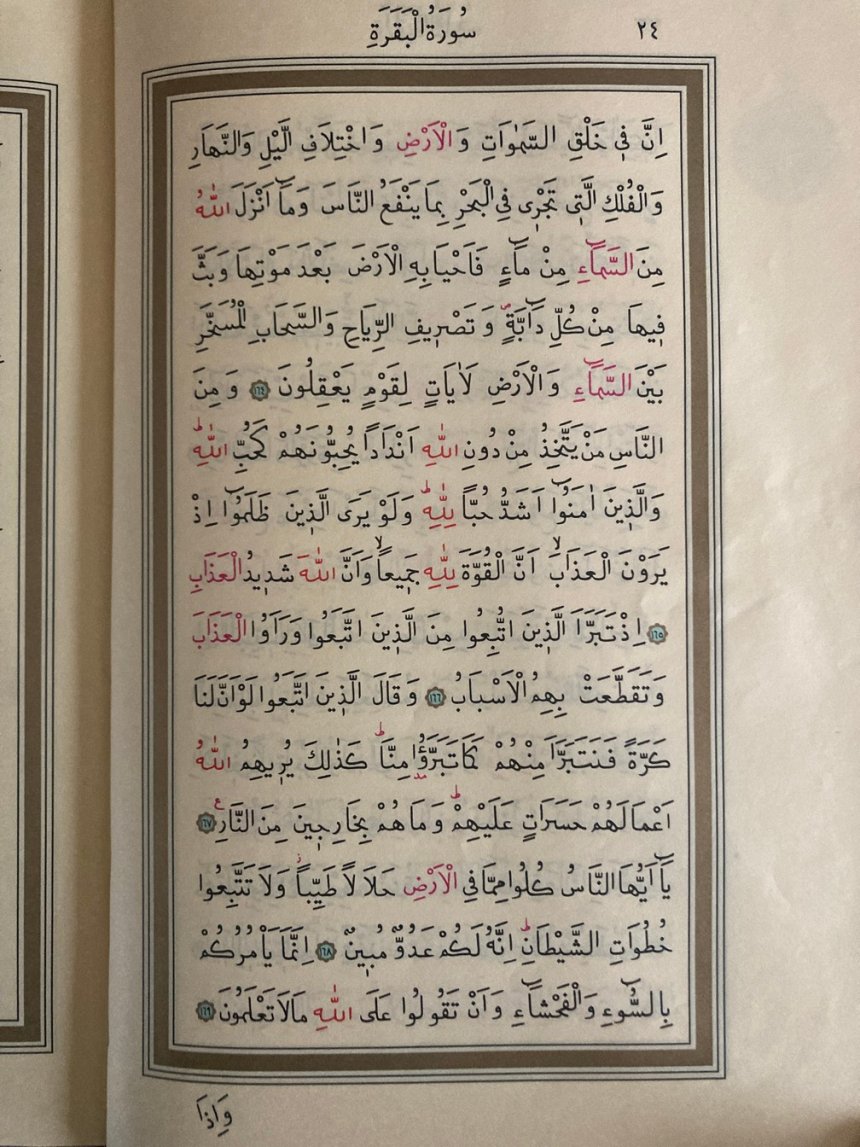 ٢٤
سُورَةُ الْبَقَرَةِ
اِنَّ فٖي خَلْقِ السَّمٰوَاتِ وَالْاَرْضِ وَاخْتِلَافِ الَّيْلِ وَالنَّهَارِ
وَالْفُلْكِ الَّتٖي تَجْرٖي فِي الْبَحْرِ بِمَا يَنْفَعُ النَّاسَ وَمَٓا اَنْزَلَ اللّٰهُ
مِنَ السَّمَٓاءِ مِنْ مَٓاءٍ فَاَحْيَا بِهِ الْاَرْضَ بَعْدَ مَوْتِهَا وَبَثَّ
فٖيهَا مِنْ كُلِّ دَٓابَّةٍࣕ وَتَصْرٖيفِ الرِّيَاحِ وَالسَّحَابِ الْمُسَخَّرِ
بَيْنَ السَّمَٓاءِ وَالْاَرْضِ لَاٰيَاتٍ لِقَوْمٍ يَعْقِلُونَ ﴿١٦٤﴾ وَمِنَ
النَّاسِ مَنْ يَتَّخِذُ مِنْ دُونِ اللّٰهِ اَنْدَاداً يُحِبُّونَهُمْ كَحُبِّ اللّٰهِؕ
وَالَّذٖينَ اٰمَنُٓوا اَشَدُّ حُبّاً لِلّٰهِؕ وَلَوْ يَرَى الَّذٖينَ ظَلَمُٓوا اِذْ
يَرَوْنَ الْعَذَابَۙ اَنَّ الْقُوَّةَ لِلّٰهِ جَمٖيعاًۙ وَاَنَّ اللّٰهَ شَدٖيدُ الْعَذَابِ
﴿١٦٥﴾ اِذْ تَبَرَّاَ الَّذٖينَ اتُّبِعُوا مِنَ الَّذٖينَ اتَّبَعُوا وَرَاَوُا الْعَذَابَ
وَتَقَطَّعَتْ بِهِمُ الْاَسْبَابُ ﴿١٦٦﴾ وَقَالَ الَّذٖينَ اتَّبَعُوا لَوْ اَنَّ لَنَا
كَرَّةً فَنَتَبَرَّاَ مِنْهُمْ كَمَا تَبَرَّؤُ۫ا مِنَّاؕ كَذٰلِكَ يُرٖيهِمُ اللّٰهُ
اَعْمَالَهُمْ حَسَرَاتٍ عَلَيْهِمْؕ وَمَا هُمْ بِخَارِجٖينَ مِنَ النَّارِࣖ ﴿١٦٧﴾
يَٓا اَيُّهَا النَّاسُ كُلُوا مِمَّا فِي الْاَرْضِ حَلَالاً طَيِّباًؗ وَلَا تَتَّبِعُوا
خُطُوَاتِ الشَّيْطَانِؕ اِنَّهُ لَكُمْ عَدُوٌّ مُبٖينٌ ﴿١٦٨﴾ اِنَّمَا يَأْمُرُكُمْ
بِالسُّٓوءِ وَالْفَحْشَٓاءِ وَاَنْ تَقُولُوا عَلَى اللّٰهِ مَا لَا تَعْلَمُونَ ﴿١٦٩﴾
وَاِذَا